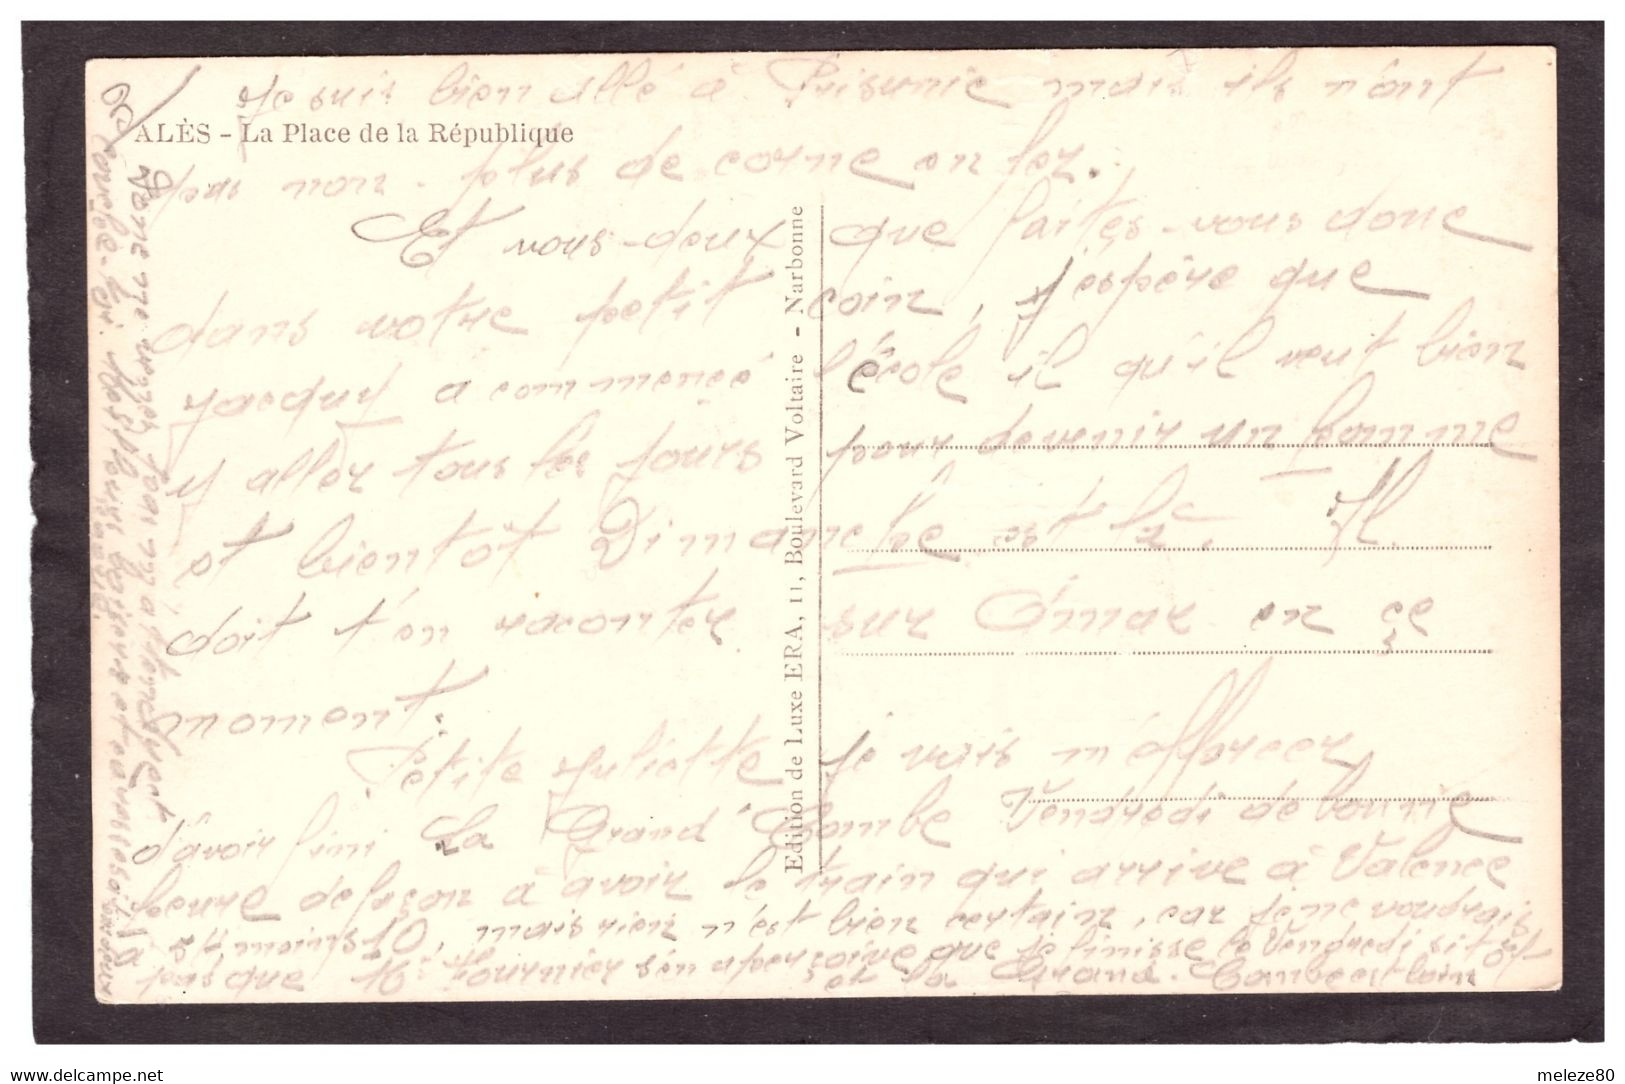 Je suis bien allé à Prisunic mais ils n'ont
ALÈS - La Place de la République
pas non-plus de corne en fer.
Et vous-deux que faites-vous donc
dans votre petit coin, j'espère que
Jacquy a commencé l'école il qu'il veut bien
y aller tous les jours pour devenir un homme
et bientôt Dimanche est là. Il
doit t'en raconter sur Omar en ce
moment.
Petite Juliette je vais m'efforcer
d'avoir fini La Grand'Combe Vendredi de bonne
heure de façon à avoir le train qui arrive à Valence
à 4 moins 10, mais rien n'est bien certain, car je ne voudrais
pas que Tournier s'en aperçoive que je finisse le Vendredi si tôt
et la Grand-Combe est loin
Edition de Luxe ERA, 11, Boulevard Voltaire - Narbonne
delcampe.net
meleze80